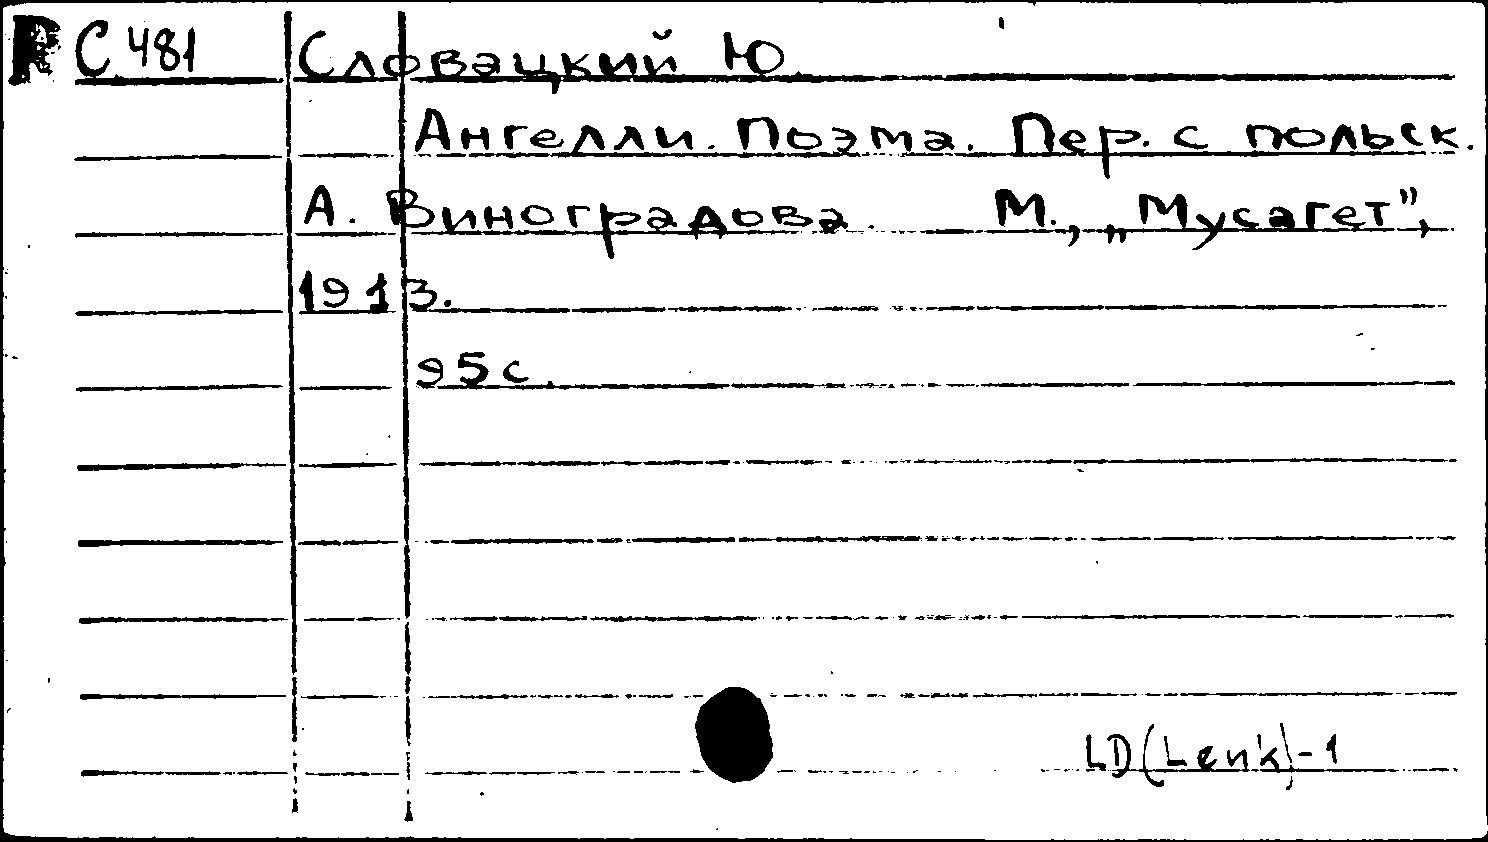 С 481 Словацкий Ю.
Ангелли. Поэма. Пер. с польск.
А. Виноградова. М., „Мусагет",
1913.
95 с.
LD(Lenk)-1